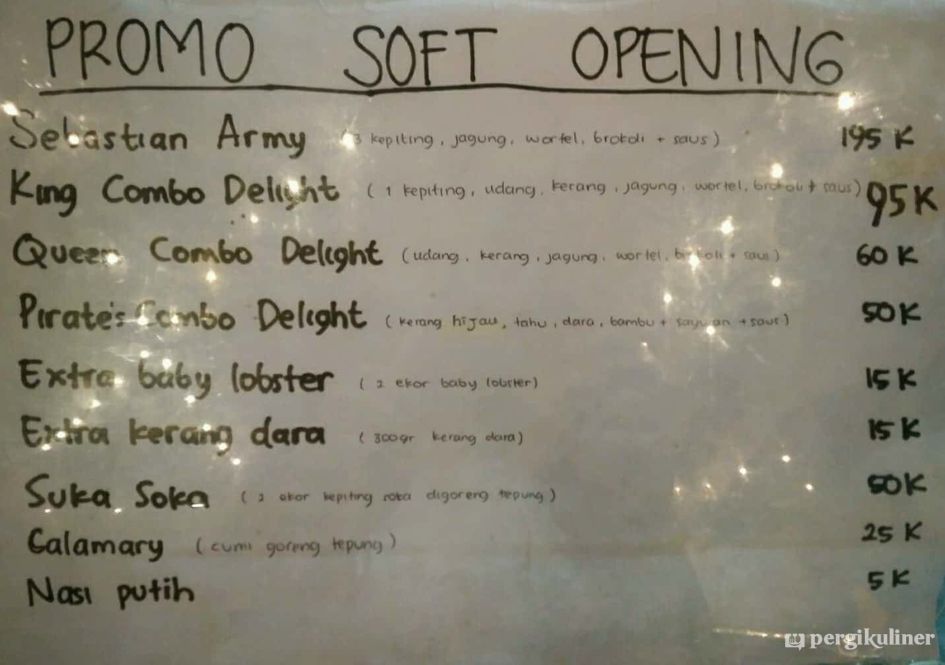 PROMO SOFT OPENING
Sebastian Army (3 kepiting, jagung, wortel, brokoli + saus) 195 K
King Combo Delight (1 kepiting, udang, kerang, jagung, wortel, brokoli + saus) 95 K
Queen Combo Delight (udang, kerang, jagung, wortel, brokoli + saus) 60 K
Pirate's Combo Delight (kerang hijau, tahu, dara, bambu + sayuran + saus) 50 K
Extra baby lobster (2 ekor baby lobster) 15 K
Extra kerang dara (300gr kerang dara) 15 K
Suka Soka (2 ekor kepiting soka digoreng tepung) 50 K
Calamary (cumi goreng tepung) 25 K
Nasi putih 5 K
pergikuliner